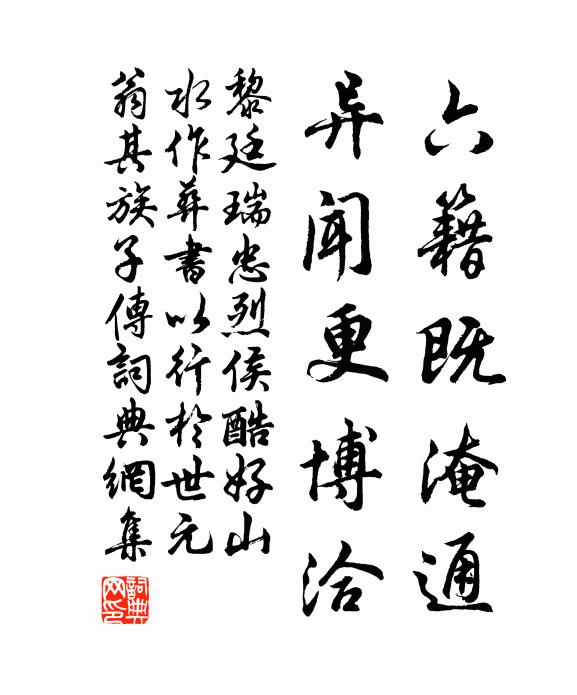 六籍既淹通
异聞更博洽
黎廷瑞忠烈侯酷好山
水作葬書以行於世元
翁其族子傳詞典網集
詞典網印